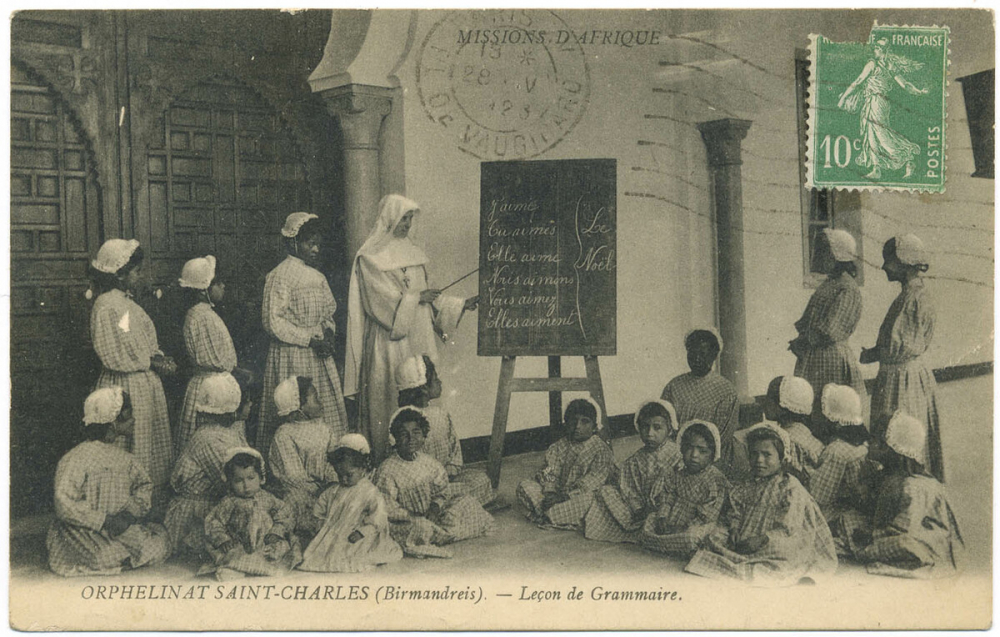 MISSIONS D'AFRIQUE
13 *
28 V
23
DE VAUGIRARD
FRANÇAISE
10c
POSTES
J'aime
Tu aimes
Elle aime
Nous aimons
Vous aimez
Elles aiment
Le
Noël
ORPHELINAT SAINT-CHARLES (Birmandreis). — Leçon de Grammaire.